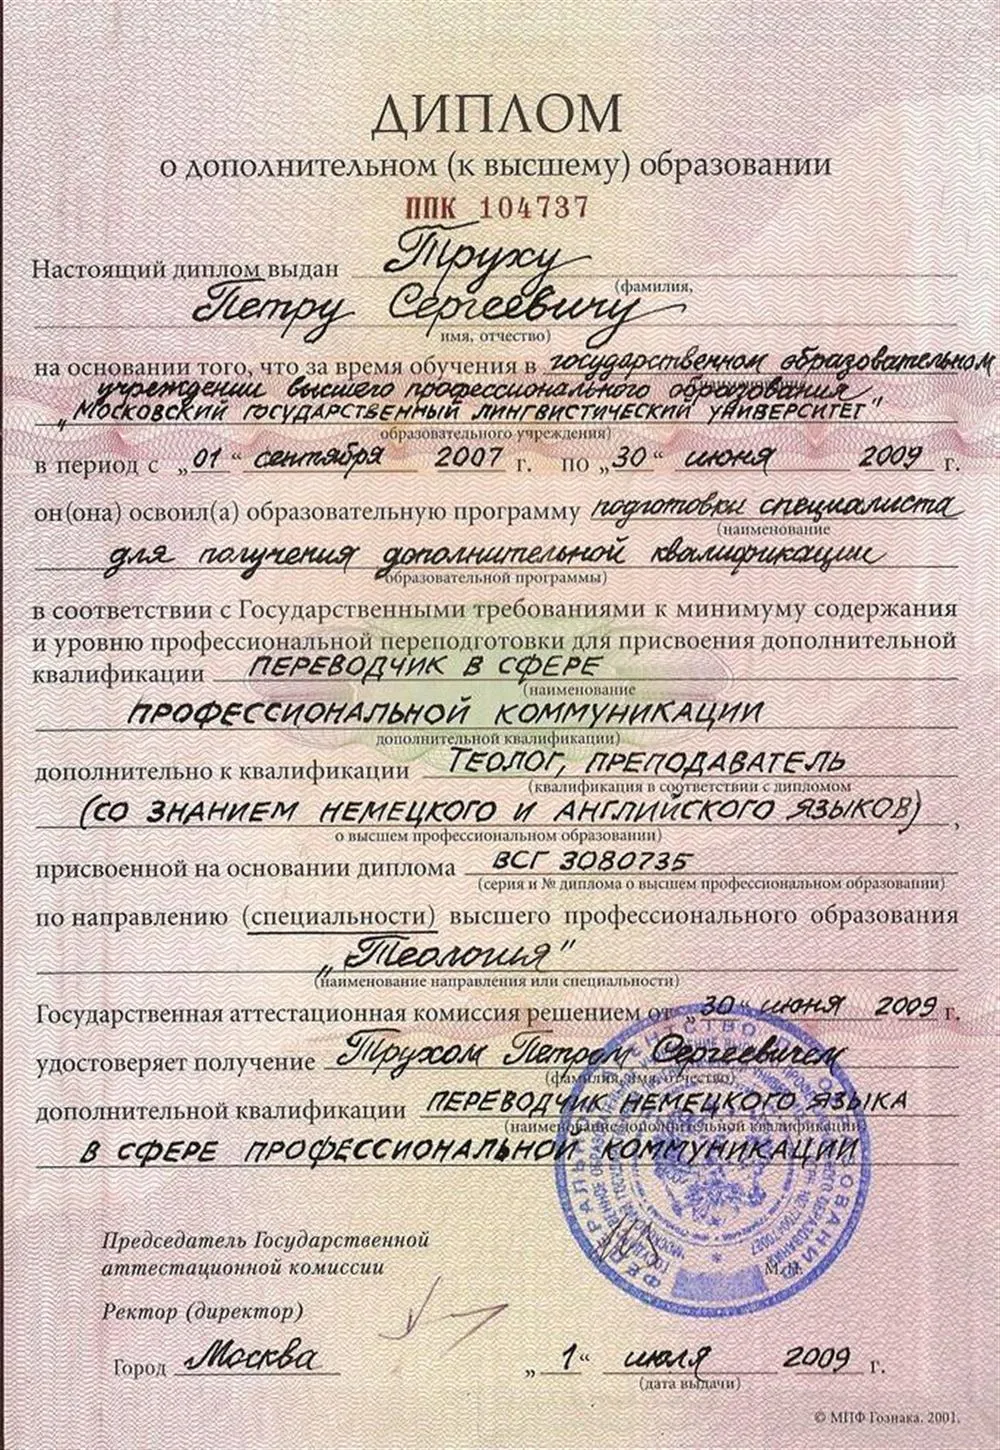 ДИПЛОМ
о дополнительном (к высшему) образовании
ППК 104737
Настоящий диплом выдан Труху
(фамилия,
Петру Сергеевичу
имя, отчество)
на основании того, что за время обучения в государственном образовательном
учреждении высшего профессионального образования
(наименование
"Московский государственный лингвистический университет"
образовательного учреждения)
в период с „01“ сентября 2007 г. по „30“ июня 2009 г.
он(она) освоил(а) образовательную программу подготовки специалиста
(наименование
для получения дополнительной квалификации
образовательной программы)
в соответствии с Государственными требованиями к минимуму содержания
и уровню профессиональной переподготовки для присвоения дополнительной
квалификации ПЕРЕВОДЧИК В СФЕРЕ
(наименование
ПРОФЕССИОНАЛЬНОЙ КОММУНИКАЦИИ
дополнительной квалификации)
дополнительно к квалификации ТЕОЛОГ, ПРЕПОДАВАТЕЛЬ
(квалификация в соответствии с дипломом
(СО ЗНАНИЕМ НЕМЕЦКОГО И АНГЛИЙСКОГО ЯЗЫКОВ) ,
о высшем профессиональном образовании)
присвоенной на основании диплома ВСГ 3080735
(серия и № диплома о высшем профессиональном образовании)
по направлению (специальности) высшего профессионального образования
„Теология"
(наименование направления или специальности)
Государственная аттестационная комиссия решением от „30“ июня 2009 г.
удостоверяет получение Трухом Петром Сергеевичем
(фамилия, имя, отчество)
дополнительной квалификации ПЕРЕВОДЧИК НЕМЕЦКОГО ЯЗЫКА
(наименование дополнительной квалификации)
В СФЕРЕ ПРОФЕССИОНАЛЬНОЙ КОММУНИКАЦИИ
Председатель Государственной
аттестационной комиссии
М.П.
Ректор (директор)
Город Москва „1“ июля 2009 г.
(дата выдачи)
© МПФ Гознака. 2001.